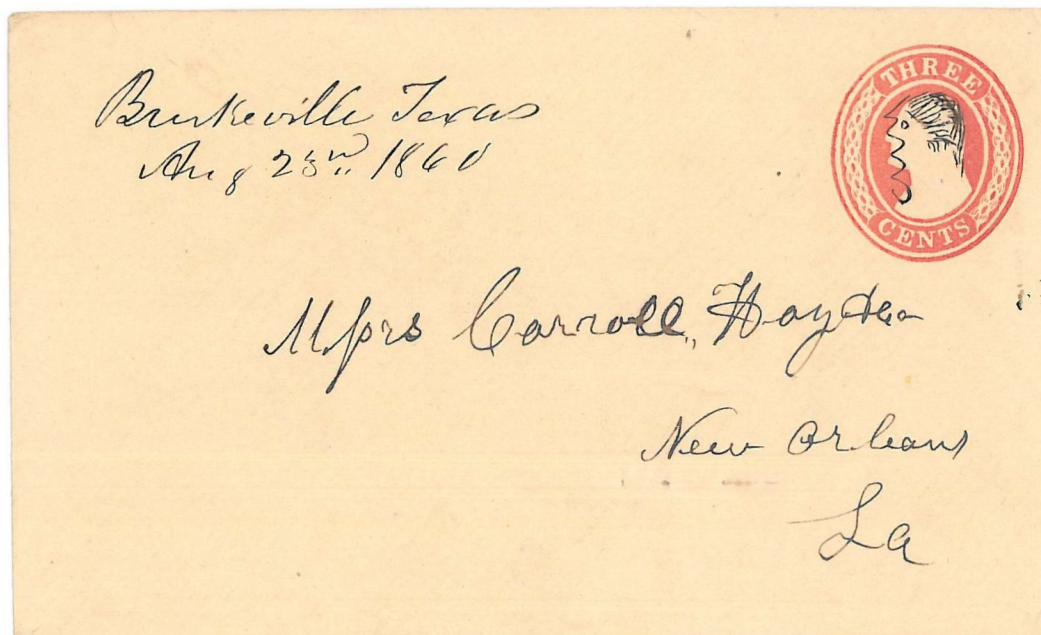 Burkeville Texas
Aug 23rd 1860
THREE
CENTS
Messrs Carroll, Hoy & Co
New Orleans
La